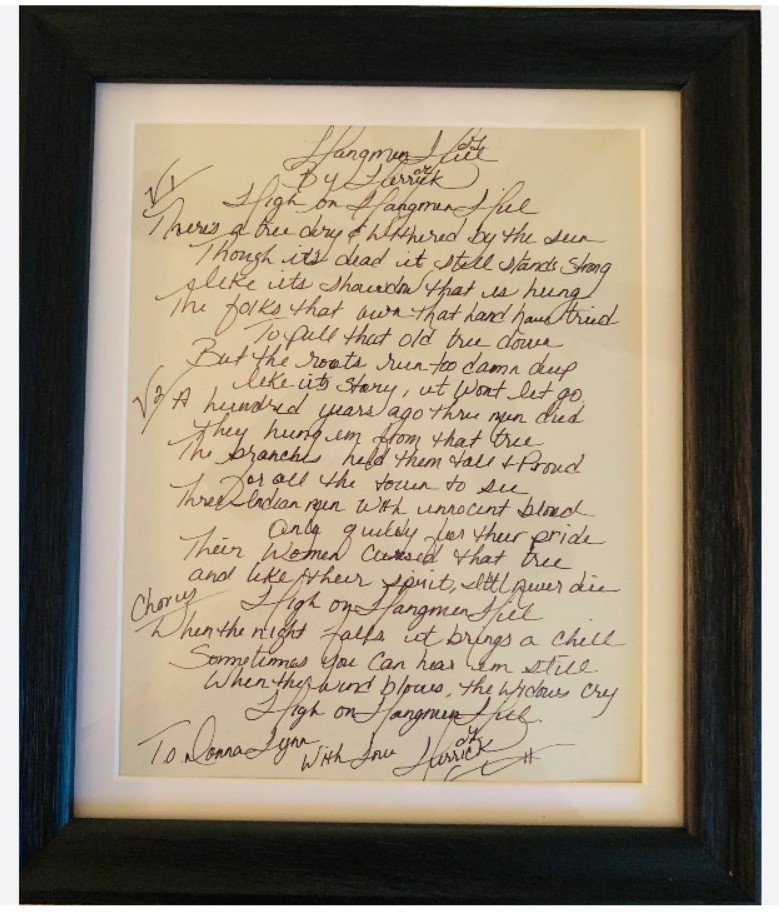 Hangmen Hill
By Herrick
V1 High on Hangmen Hill
There's a tree dry & Withered by the sun
Though it's dead it still stands strong
like its shawdow that is hung
The folks that own that land have tried
To pull that old tree down
But the roots run too damn deep
like its story, it wont let go.
V2 A hundred years ago three men died
They hung em from that tree
The branches held them tall & Proud
For all the town to see
Three Indian men with innocent blood
Only guilty for their pride
Their Women Cursed that tree
and like their spirit, it'll never die
Chorus High on Hangmen Hill
When the night falls it brings a chill
Sometimes you can hear em still
When the wind blows, the Widows cry
High on Hangmen Hill.
To Donna Lynn
With Love Herrick